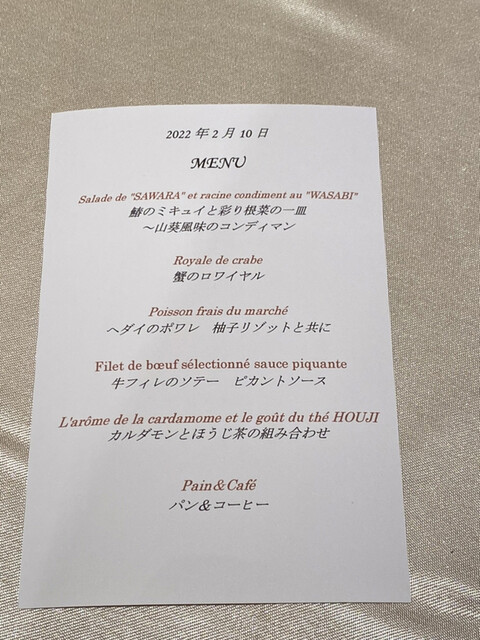 2022 年 2 月 10 日
MENU
Salade de "SAWARA" et racine condiment au "WASABI"
鰆のミキュイと彩り根菜の一皿
～山葵風味のコンディマン
Royale de crabe
蟹のロワイヤル
Poisson frais du marché
ヘダイのポワレ　柚子リゾットと共に
Filet de bœuf sélectionné sauce piquante
牛フィレのソテー　ピカントソース
L'arôme de la cardamome et le goût du thé HOUJI
カルダモンとほうじ茶の組み合わせ
Pain&Café
パン＆コーヒー